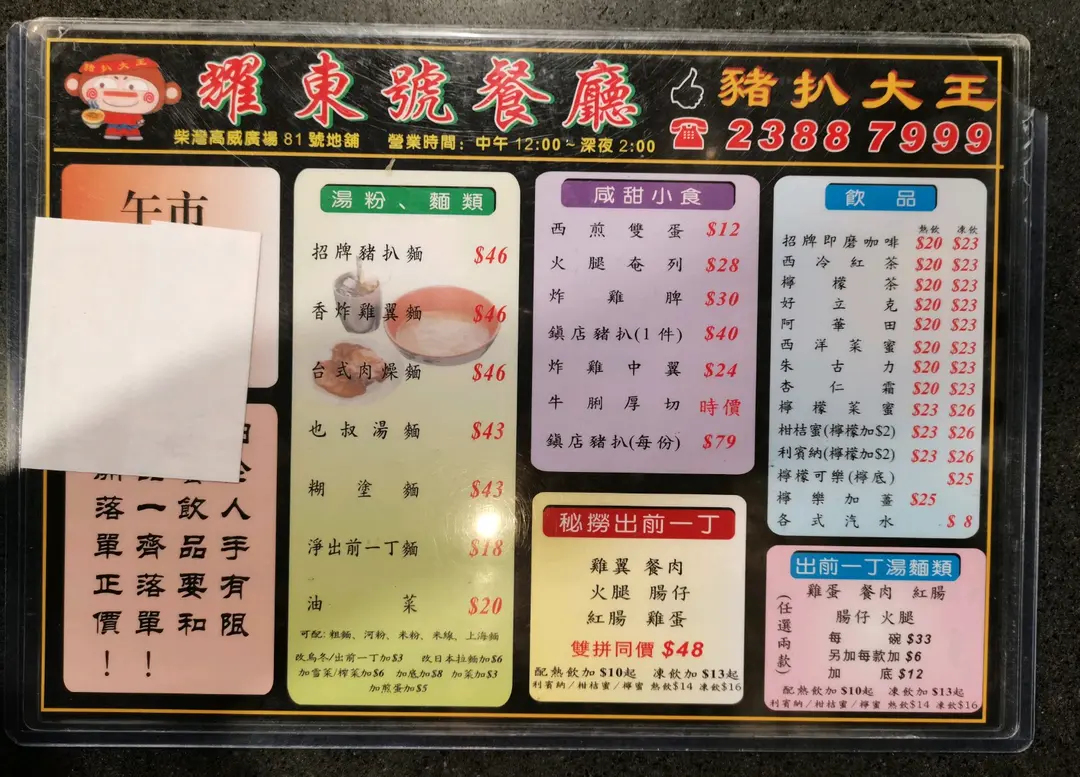 豬扒大王
耀東號餐廳
豬扒大王
柴灣高威廣場81號地舖 營業時間：中午12:00~深夜2:00
☎ 2388 7999
午市
人手有限
飲品要和
一齊落單！
落單正價！
湯粉、麵類
招牌豬扒麵 $46
香炸雞翼麵 $46
台式肉燥麵 $46
也叔湯麵 $43
糊塗麵 $43
淨出前一丁麵 $18
油菜 $20
可配: 粗麵、河粉、米粉、米線、上海麵
改烏冬/出前一丁加$3 改日本拉麵加$6
加雪菜/榨菜加$6 加底加$8 加菜加$3
加煎蛋加$5
咸甜小食
西煎雙蛋 $12
火腿奄列 $28
炸雞脾 $30
鎮店豬扒(1件) $40
炸雞中翼 $24
牛脷厚切 時價
鎮店豬扒(每份) $79
秘撈出前一丁
雞翼 餐肉
火腿 腸仔
紅腸 雞蛋
雙拼同價 $48
配熱飲加 $10起 凍飲加 $13起
利賓納/柑桔蜜/檸蜜 熱飲$14 凍飲$16
飲品
熱飲 凍飲
招牌即磨咖啡 $20 $23
西冷紅茶 $20 $23
檸檬茶 $20 $23
好立克 $20 $23
阿華田 $20 $23
西洋菜蜜 $20 $23
朱古力 $20 $23
杏仁霜 $20 $23
檸檬菜蜜 $23 $26
柑桔蜜(檸檬加$2) $23 $26
利賓納(檸檬加$2) $23 $26
檸檬可樂(檸底) $25
檸樂加薑 $25
各式汽水 $8
出前一丁湯麵類
(任選兩款)
雞蛋 餐肉 紅腸
腸仔 火腿
每碗 $33
另加每款加 $6
加底 $12
配熱飲加 $10起 凍飲加 $13起
利賓納/柑桔蜜/檸蜜 熱飲$14 凍飲$16